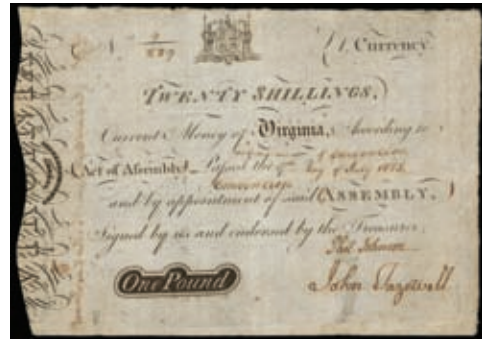 £1. Currency.
TWENTY SHILLINGS,
Current Money of Virginia, According to
Act of Assembly Passed the July
Convention
and by appointment of said ASSEMBLY.
Signed by us and endorsed by the Treasurer.
Phil Johnson
One Pound
John Tazewell